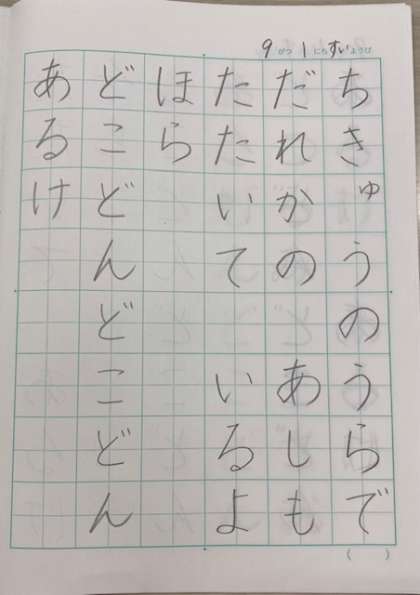 9がつ1にちすいようび
ちきゅうのうらで
だれかの あしも
たたいて いるよ
ほら
どこどんどこどん
あるけ